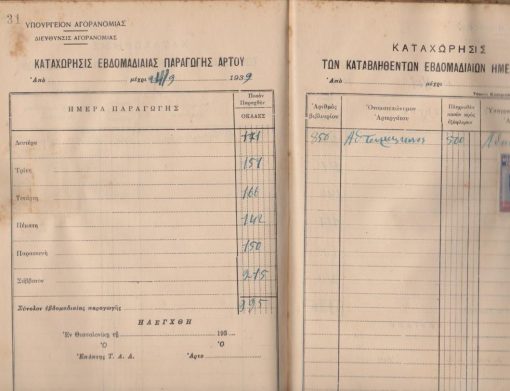 31
ΥΠΟΥΡΓΕΙΟΝ ΑΓΟΡΑΝΟΜΙΑΣ
ΔΙΕΥΘΥΝΣΙΣ ΑΓΟΡΑΝΟΜΙΑΣ
ΚΑΤΑΧΩΡΗΣΙΣ ΕΒΔΟΜΑΔΙΑΙΑΣ ΠΑΡΑΓΩΓΗΣ ΑΡΤΟΥ
Ἀπὸ μέχρι /9 1939
ΗΜΕΡΑ ΠΑΡΑΓΩΓΗΣ
Ποσὸν
Παραχθὲν
ΟΚΑΔΕΣ
Δευτέρα 171
Τρίτη 151
Τετάρτη 166
Πέμπτη 142
Παρασκευὴ 150
Σάββατον 215
Σύνολον ἑβδομαδιαίας παραγωγῆς 995
ΗΛΕΓΧΘΗ
Ἐν Θεσσαλονίκῃ τῇ 193
Ὁ Ὁ
Ἐπόπτης Τ. Α. Δ. Ἀρτο
ΚΑΤΑΧΩΡΗΣΙΣ
ΤΩΝ ΚΑΤΑΒΛΗΘΕΝΤΩΝ ΕΒΔΟΜΑΔΙΑΙΩΝ ΗΜΕ
Ἀπὸ μέχρι
Ἀριθμὸς
βιβλιαρίου
Ὀνοματεπώνυμον
Ἀρτεργάτου
Πληρωθὲν
ποσὸν πρὸς
ἐξόφλησιν
Ὑπογρ
850 500